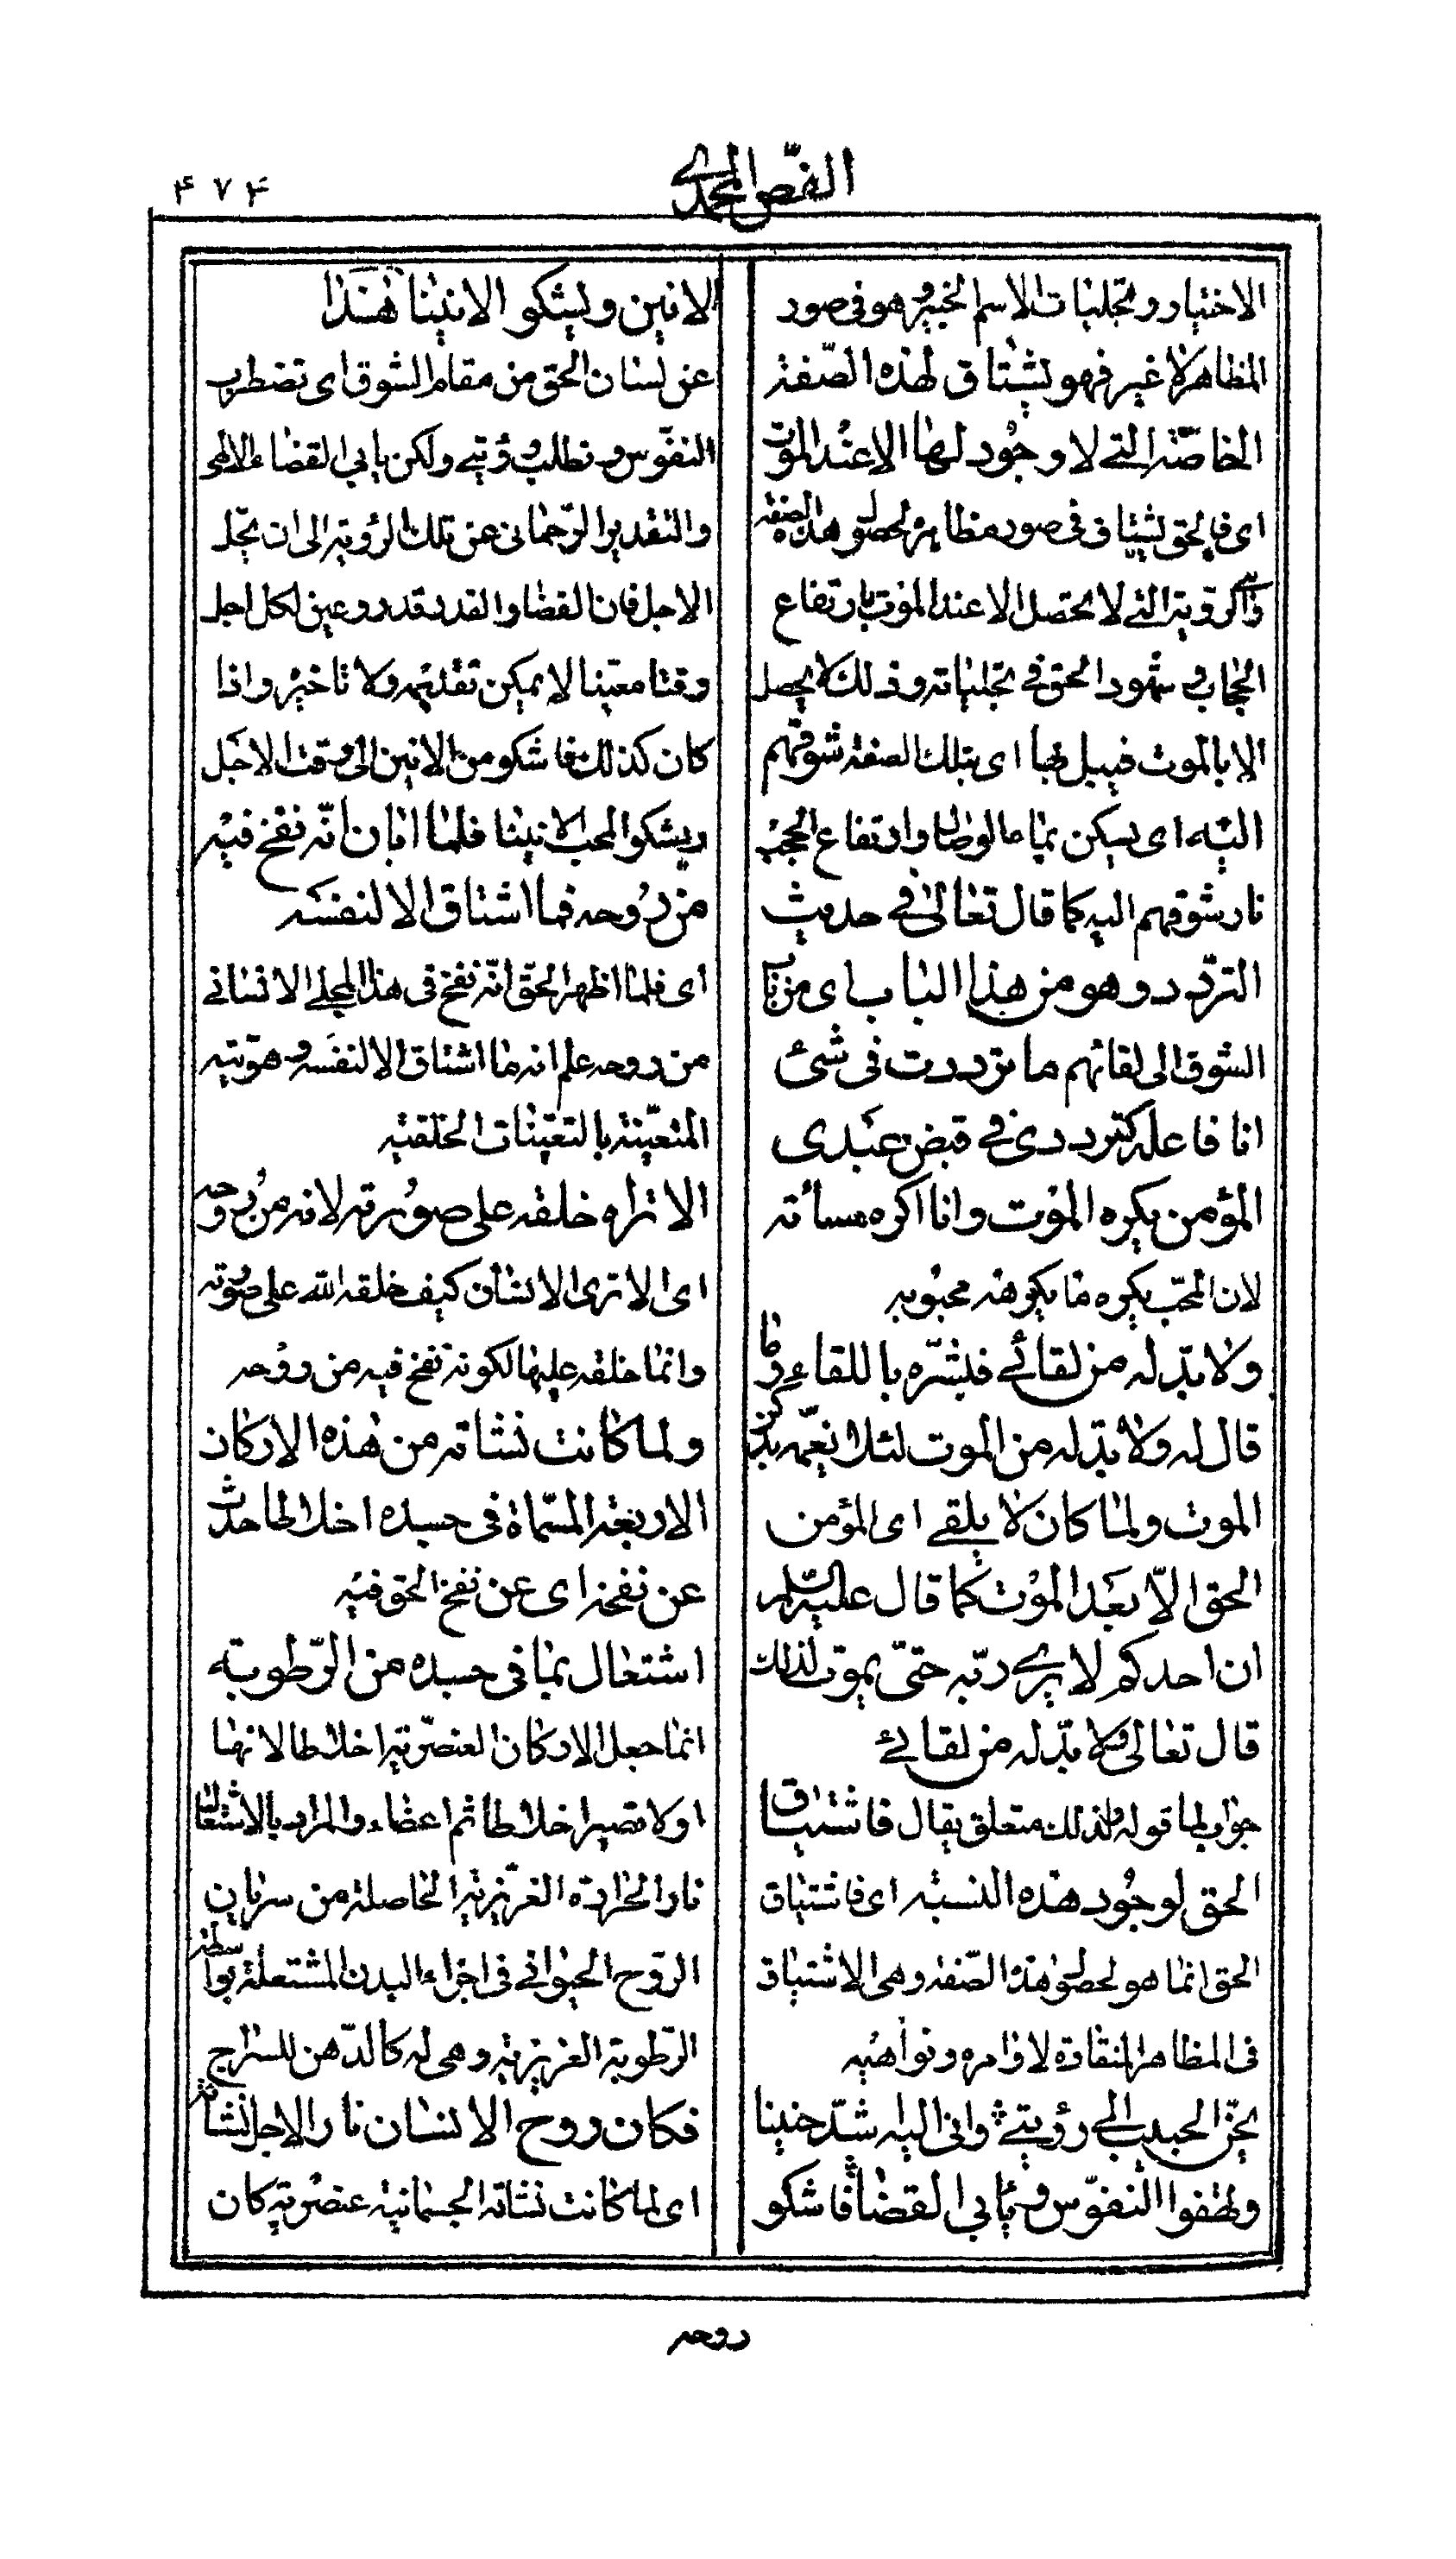 الفصّ المحمدے
۴۷۴
الاختبار و تجليات الاسم الخبير و هو فى صور
المظاهر لا غير فهو يشتاق لهذه الصّفة
الخاصّة التے لا وجود لها الا عند الموت
اى فالحق يشتاق فى صور مظاهره لحصول هذه الصفة
الرؤية التے لا تحصل الا عند الموت بارتفاع
الحجاب و شهود الحق فے تجلياته و ذلك لا يحصل
الا بالموت فيبل بها اى بتلك الصفة شوقهم
اليه اى يسكن بماء الوصال و ارتفاع الحجب
نار شوقهم اليه كما قال تعالى فے حديث
التردّد و هو من هذا الباب اى من باب
الشوق الى لقائهم ما ترددت فى شئ
انا فاعله كترددى فے قبض عبدى
المؤمن يكره الموت و انا اكره مسائته
لان المحبّ يكره ما يكرهه محبوبه
و لا بدّ له من لقائے فبشّره باللقاء و ما
قال له و لا بدّ له من الموت لئلا يغمّه بذكر
الموت و لما كان لا يلقے اى المؤمن
الحق الاّ بعد الموت كما قال عليه السّلم
ان احدكم لا يرے ربّه حتىّ يموت لذلك
قال تعالى و لا بدّ له من لقائے
جواب لما قوله و لذلك متعلق بقال فاشتياق
الحق لوجود هذه النسبة اى فاشتياق
الحق انما هو لحصول هذه الصّفة و هى الاشتياق
فى المظاهر المنقادة لاوامره و نواهيه
يحنّ الحبيب الى رؤيتے و انى اليه اشدّ حنينا
و تهفوا النفوّس و يأبى القضا فاشكو
الانين و يشكو الانينا هذا
عن لسان الحق من مقام الشوق اى تضطرب
النفوّس و تطلب رؤيتے و لكن يابى القضاء الالهى
و التقدير الرّحمانى عن تلك الرؤية الى ان يحلّ
الاجل فان القضا و القدر قدر و عين لكل اجل
وقتا معيّنا لا يمكن تقديمه و لا تاخيره و اذا
كان كذلك فاشكو من الانين الى وقت الاجل
و يشكو المحب الانينا فلما ابان انّه نفخ فيه
من روحه فما اشتاق الا لنفسه
اى فلما اظهر الحقّ انّه نفخ فى هذا المجلے الانسانے
من روحه علم انه ما اشتاق الا لنفسه و هويته
المتعيّنة بالتعيّنات الخلقية
الا تراه خلقه على صورته لانه من روحه
اى الا ترى الانسان كيف خلقه الله على صورته
و انما خلقه عليها لكونه نفخ فيه من روحه
و لما كانت نشاته من هذه الاركان
الاربعة المسّماة فى جسده اخلاطا حدث
عن نفخه اى عن نفخ الحق فيه
اشتعال بما فى جسده من الرّطوبة
انما جعل الاركان العنصرّية اخلاطا لانها
اولا تصير اخلاطا ثم اعضاء و المراد بالاشتعال
نار الحرارة الغرّيزية الحاصلة من سريان
الرّوح الحيوانے فى اجزاء البدن المشتعلة بواسطة
الرّطوبة الغريزية و هى له كالدّهن للسراج
فكان روح الانسان نارا لاجل نشاته
اى لما كانت نشاته الجسمانية عنصرية كان
روحه